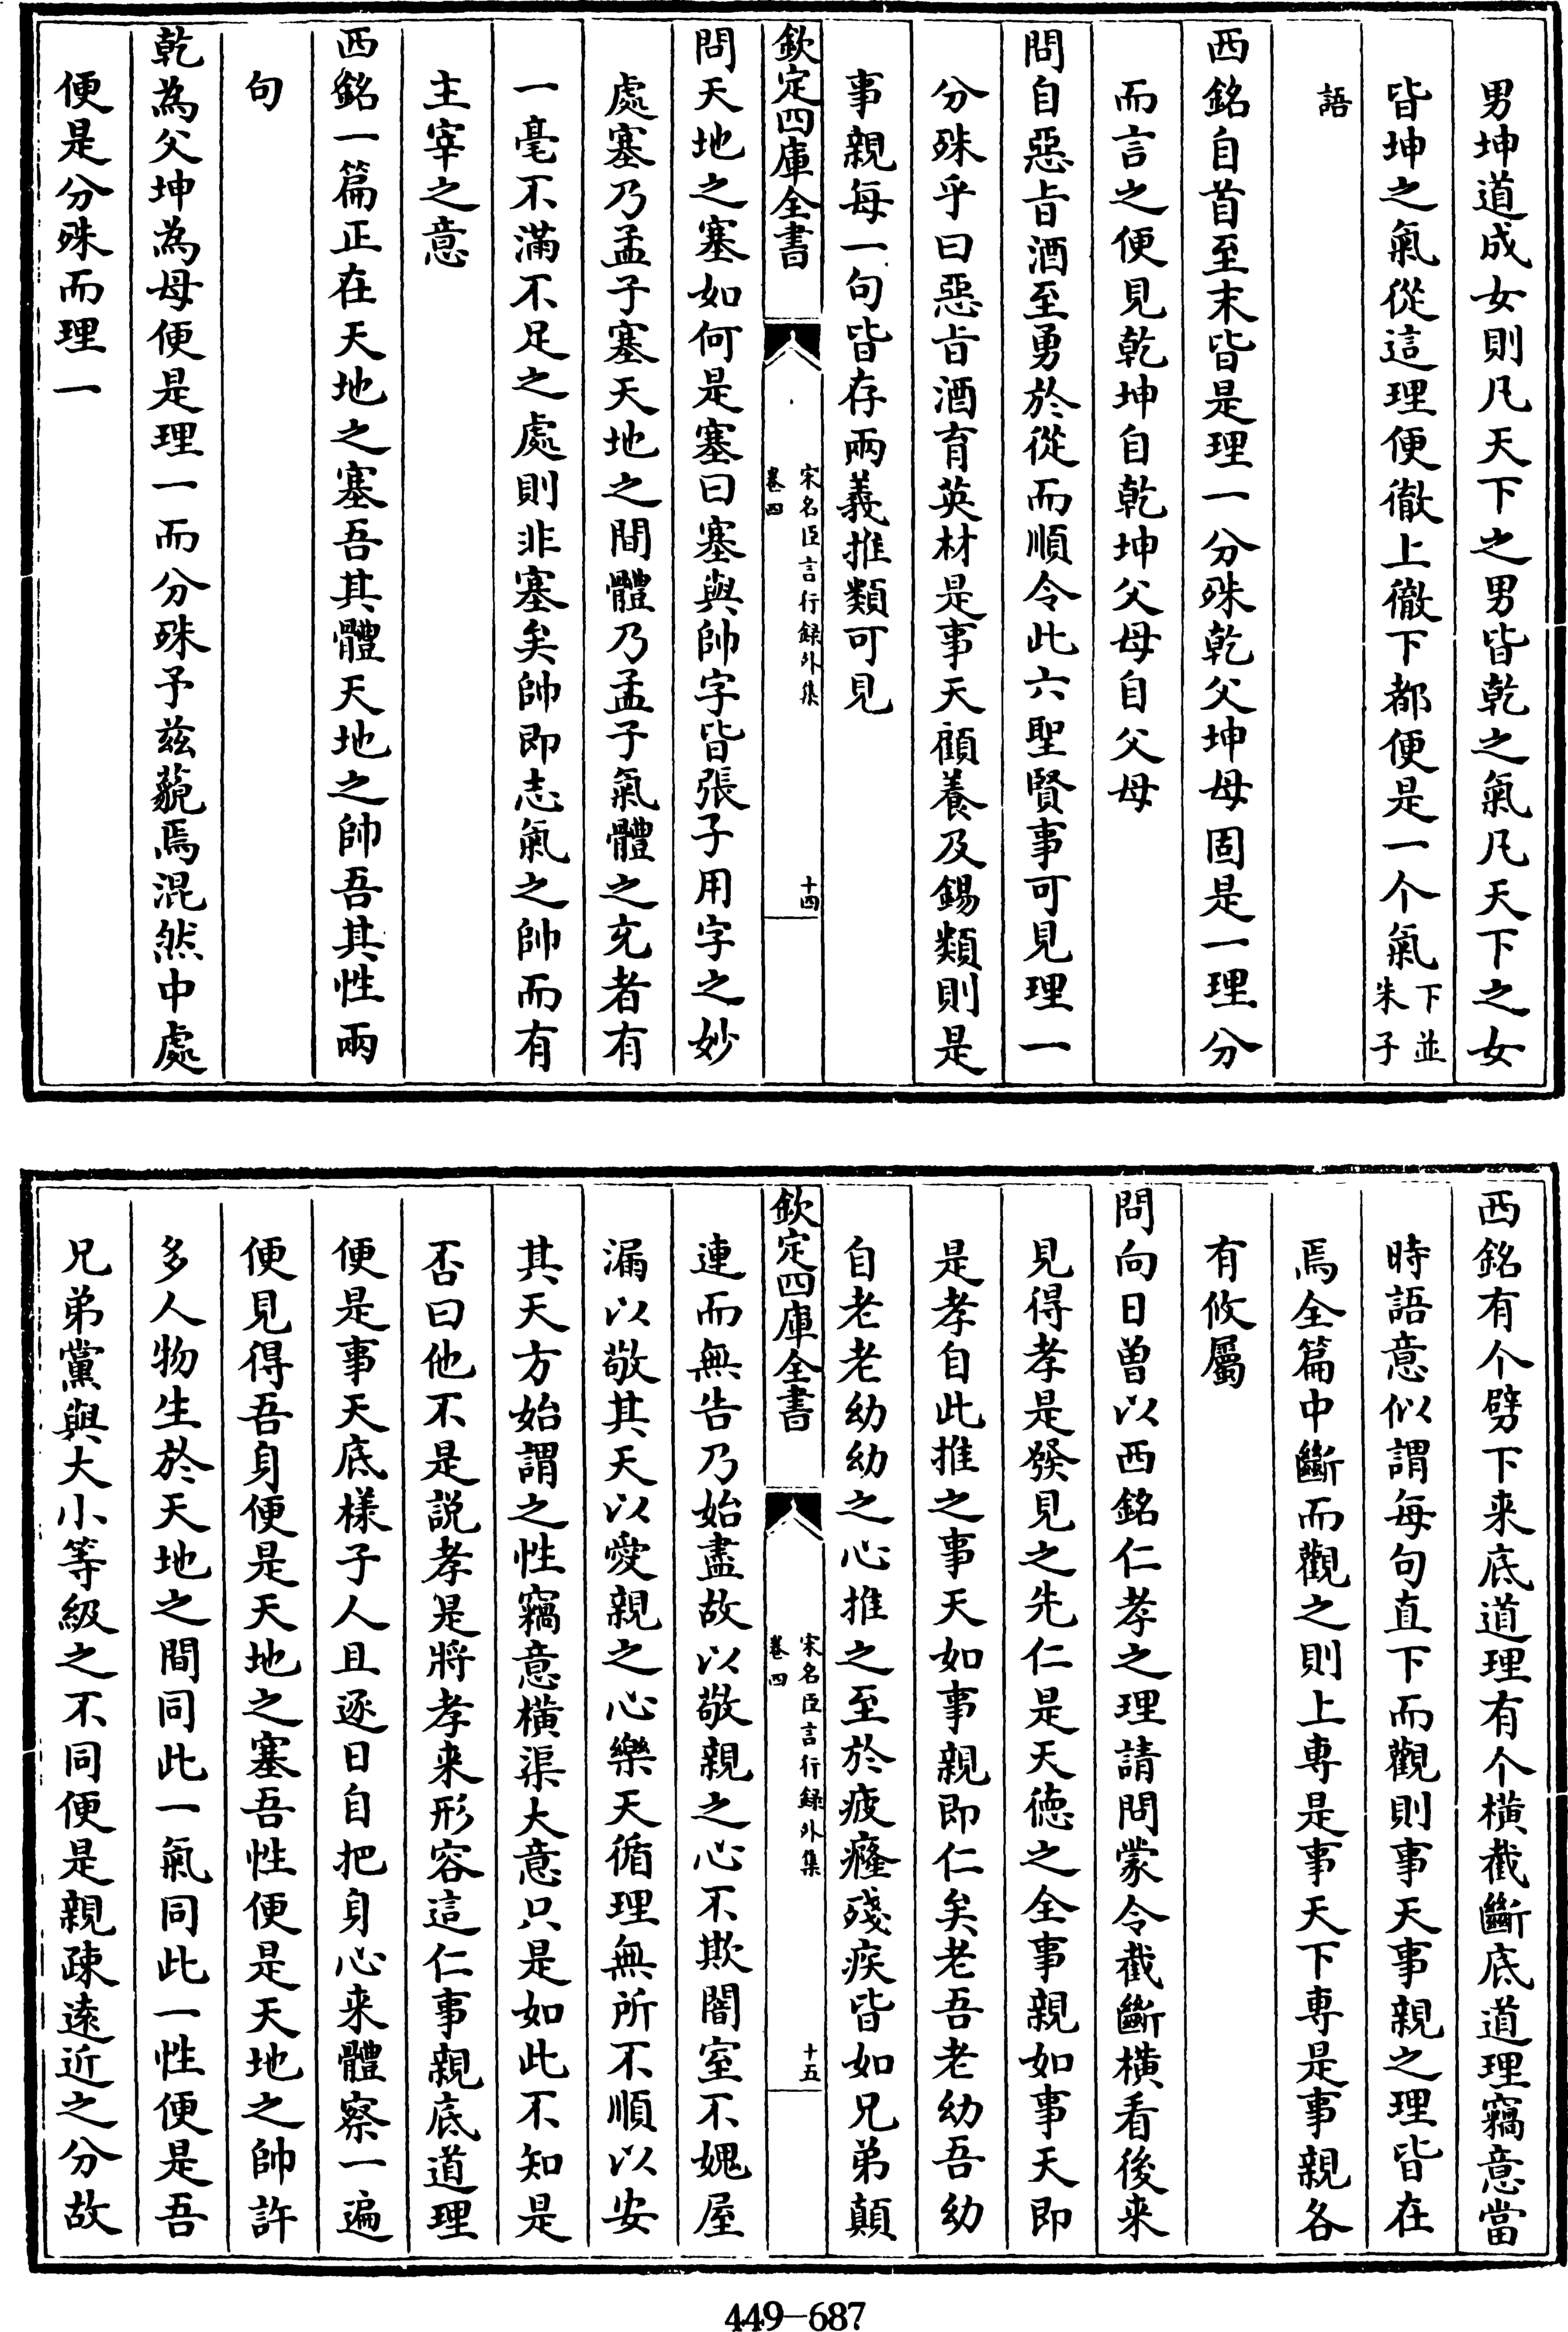 男坤道成女則凡天下之男皆乾之氣凡天下之女
皆坤之氣從這理便徹上徹下都便是一个氣下並朱子
語
西銘自首至末皆是理一分殊乾父坤母固是一理分
而言之便見乾坤自乾坤父母自父母
問自惡旨酒至勇於從而順令此六聖賢事可見理一
分殊乎曰惡旨酒育英材是事天顧養及錫類則是
事親每一句皆存兩義推類可見
欽定四庫全書
宋名臣言行録外集
卷四
十四
問天地之塞如何是塞曰塞與帥字皆張子用字之妙
處塞乃孟子塞天地之間體乃孟子氣體之充者有
一毫不滿不足之處則非塞矣帥即志氣之帥而有
主宰之意
西銘一篇正在天地之塞吾其體天地之帥吾其性兩
句
乾為父坤為母便是理一而分殊予兹藐焉混然中處
便是分殊而理一
西銘有个劈下来底道理有个横截斷底道理竊意當
時語意似謂每句直下而觀則事天事親之理皆在
焉全篇中斷而觀之則上専是事天下専是事親各
有攸屬
問向日曾以西銘仁孝之理請問蒙令截斷横看後来
見得孝是發見之先仁是天徳之全事親如事天即
是孝自此推之事天如事親即仁矣老吾老幼吾幼
自老老幼幼之心推之至於疲癃殘疾皆如兄弟顛
欽定四庫全書
宋名臣言行録外集
卷四
十五
連而無告乃始盡故以敬親之心不欺闇室不媿屋
漏以敬其天以愛親之心樂天循理無所不順以安
其天方始謂之性竊意横渠大意只是如此不知是
否曰他不是説孝是將孝来形容這仁事親底道理
便是事天底樣子人且逐日自把身心来體察一遍
便見得吾身便是天地之塞吾性便是天地之帥許
多人物生於天地之間同此一氣同此一性便是吾
兄弟黨與大小等級之不同便是親疎逺近之分故
449-687